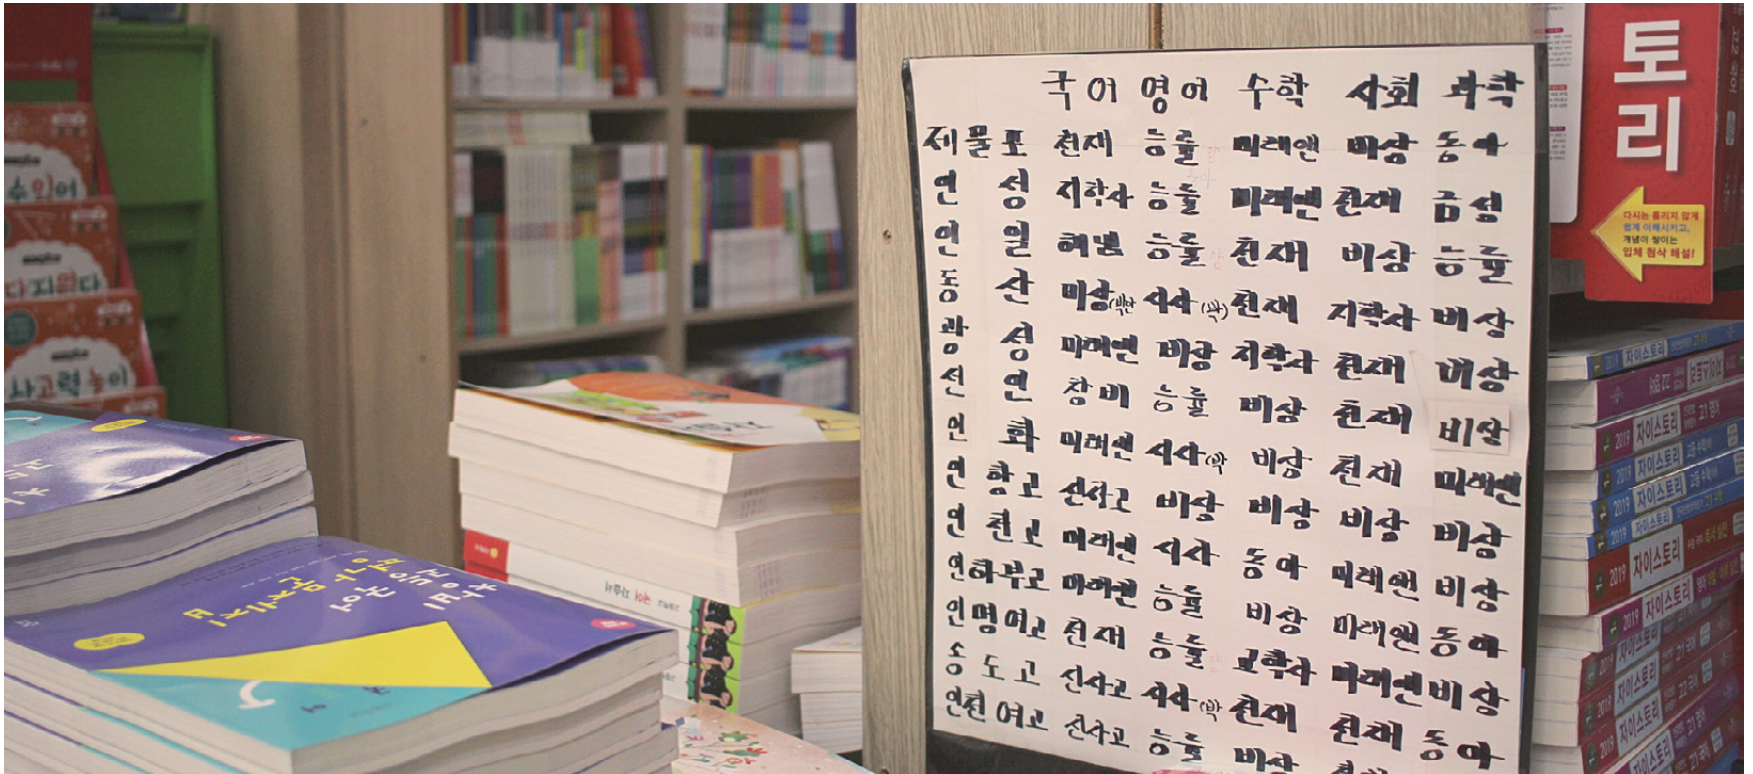 국어 영어 수학 사회 과학
제물포 천재 능률 미래엔 비상 동아
연성 지학사 능률 미래엔 천재 금성
인일 해냄 능률 천재 비상 능률
동산 비상(박안) 시사(박) 천재 지학사 비상
광성 미래엔 비상 지학사 천재 비상
선인 창비 능률 비상 천재 비상
인화 미래엔 시사(박) 비상 천재 미래엔
인항고 신사고 비상 비상 비상 비상
인천고 미래엔 시사 동아 미래엔 비상
인하부고 미래엔 능률 비상 미래엔 동아
인명여고 천재 능률 교학사 미래엔 비상
송도고 신사고 시사(박) 천재 천재 동아
인천여고 신사고 능률 비상
토리
다시는 틀리지 않게
쉽게 이해시키고,
개념이 쌓이는
입체 첨삭 해설!
수인어
다지원다
사고력 놀이
고등 국어
평가문제집
자습서
자이스토리
2019 자이스토리 고1 영어
2019 자이스토리
2019 자이스토리
2019 자이스토리
2019 자이스토리
2019 자이스토리
2019 자이스토리
2019 자이스토리
2019 자이스토리